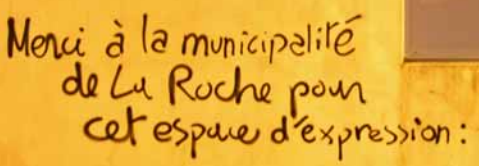 Merci à la municipalité
de La Roche pour
cet espace d'expression :